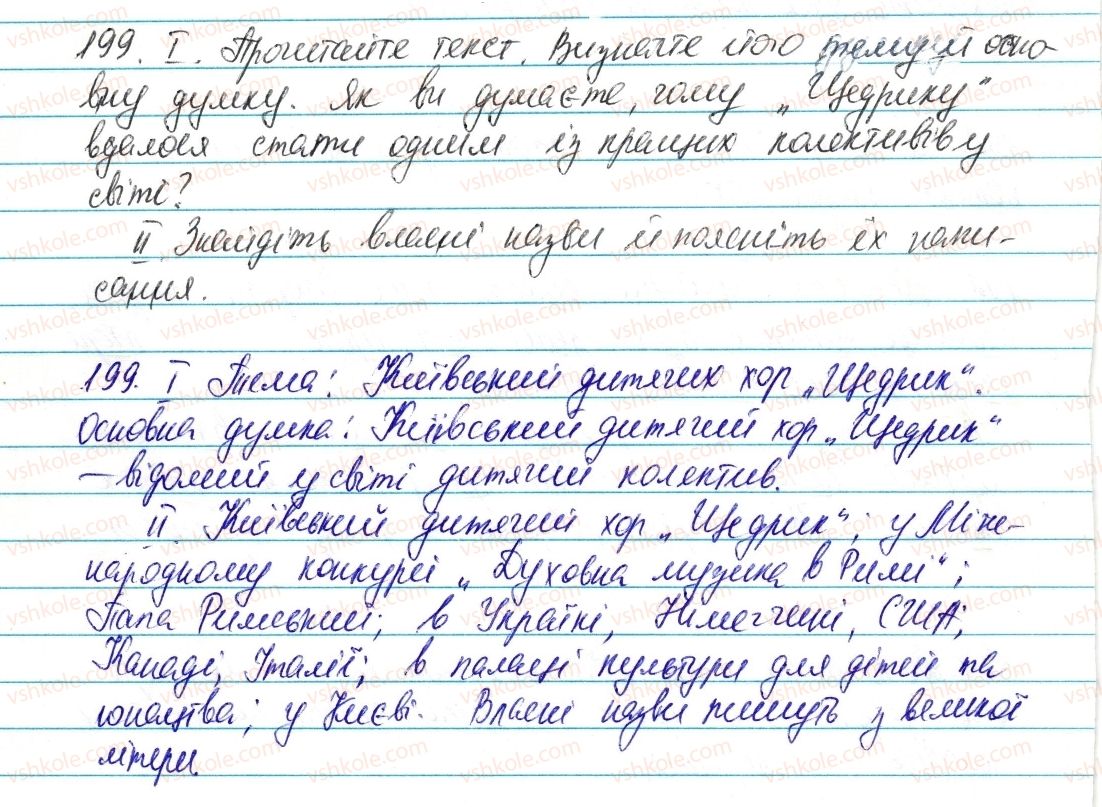 199. I. Прочитайте текст. Визначте його тему й осно-
вну думку. Як ви думаєте, чому „Щедрику"
вдалося стати одним із кращих колективів у
світі?
II Знайдіть власні назви й поясніть їх напи-
сання.
199. I Тема: Київський дитячих хор „Щедрик".
Основна думка: Київський дитячий хор „Щедрик"
– відомий у світі дитячий колектив.
II. Київський дитячий хор „Щедрик"; у Між-
народному конкурсі „Духовна музика в Римі";
Папа Римський; в Україні, Німеччині, США;
Канаді, Італії; в палаці культури для дітей та
юнацтва; у Києві. Власні назви пишуть з великої
літери.